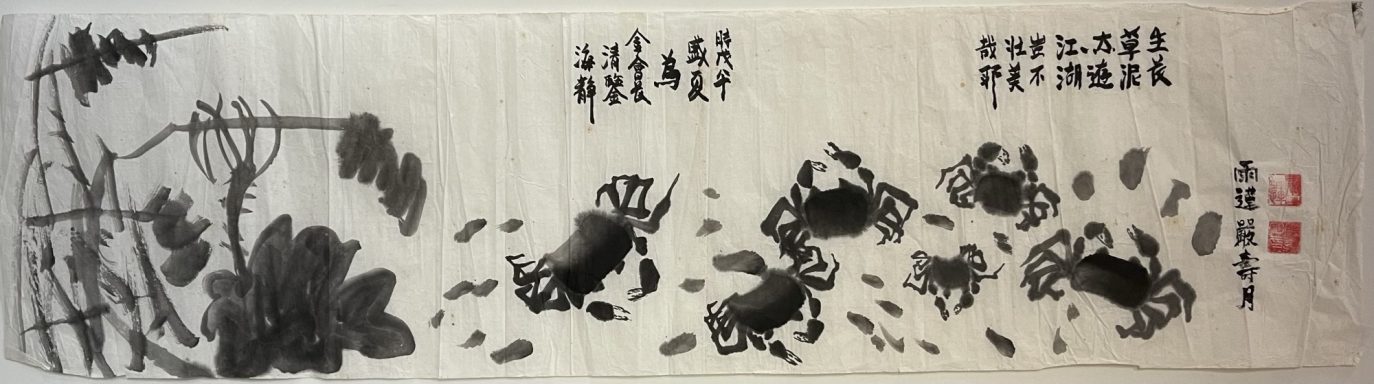 生長
草泥
志遊
江湖
豈不
壯美
哉耶
時戊午
盛夏
為
金會長
清鑒
海靜
雨謹 嚴壽月